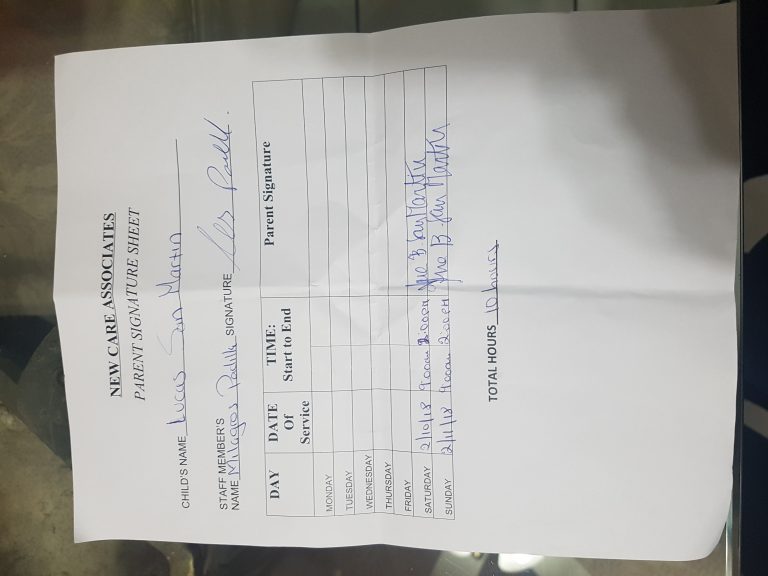 NEW CARE ASSOCIATES
PARENT SIGNATURE SHEET
CHILD'S NAME Lucas San Martin
STAFF MEMBER'S
NAME Milagros Padilla SIGNATURE
DAY DATE Of Service TIME: Start to End Parent Signature
MONDAY
TUESDAY
WEDNESDAY
THURSDAY
FRIDAY
SATURDAY 2/10/18 9:00am 2:00pm B. San Martin
SUNDAY 2/11/18 9:00am 2:00pm B. San Martin
TOTAL HOURS 10 hours